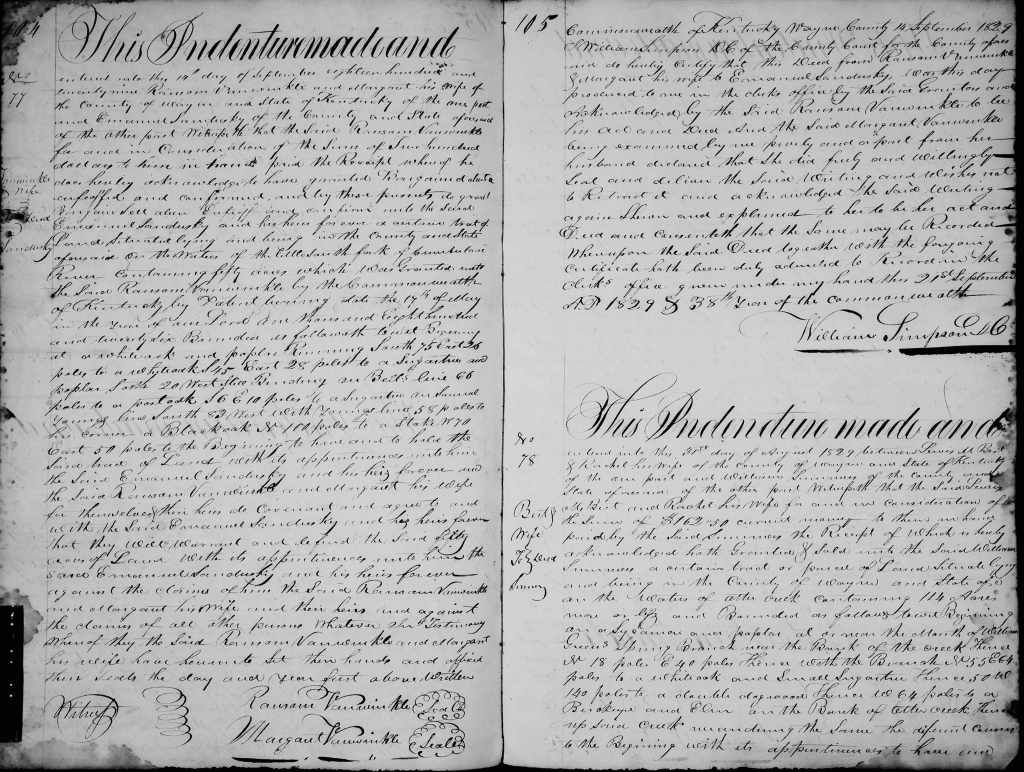 104
This Indenture made and
entered into this 14th day of September eighteen hundred and
twenty nine Ransom Vanwinkle and Margaret his Wife of
the County of Wayne and State of Kentucky of the one part
and Emanuel Sandusky of the County and State aforesaid
of the other part Witnesseth that the Said Ransom Vanwinkle
for and in Consideration of the Sum of hundred
dollars to him in paid the Receipt whereof he
does hereby acknowledge to have granted Bargained
enfeoffed and confirmed and by these presents do grant
Bargain Sell alien Enfeoff and confirm unto the Said
Emanuel Sandusky and his heirs forever a certain tract of
Land situated lying and being in the County and State
aforesaid on the Waters of the little South fork of Cumberland
River Containing fifty acres which Was Granted unto
the Said Ransom Vanwinkle by the Commonwealth
of Kentucky by Patent bearing date the 17th of May
in the Year of our Lord one thousand Eight hundred
and twenty six Bounded as followeth towit Beginning
at a whiteoak and poplar Running South 75 East 26
poles to a whiteoak S 45 East 28 poles to a Sugartree and
poplar 20 West Binding on Bell's line 66
poles to a postoak S 6 E 10 poles to a Sugartree on Samuel
Youngs line South 83 West With Youngs line 58 poles to
his Corner a Blackoak N 100 poles to a Stake N 70
East 50 poles to the Beginning to have and to hold the
Said tract of Land With its appurtenances unto him
the Said Emanuel Sandusky and his heirs forever and
the Said Ransom Vanwinkle and Margaret his Wife
for themselves their heirs do Covenant and agree to and
with the Said Emanuel Sandusky and his heirs forever
that they Will Warrant and defend the Said fifty
acres of Land With its appurtenances unto him the
Said Emanuel Sandusky and his heirs forever
against the claims of him the Said Ransom Vanwinkle
and Margaret his Wife and their heirs and against
the claims of all other persons Whatever In Testimony
Whereof they the Said Ransom Vanwinkle and Margaret
his wife have hereunto Set their hands and affixed
their Seals the day and Year first above Written
Witness
Ransom Vanwinkle Seal
Margaret Vanwinkle Seal
77
Vanwinkle
Wife
Deed
Sandusky
105
Commonwealth of Kentucky Wayne County 14 September 1829
I William Simpson D.C of the County Court for the County aforesaid
do hereby Certify that this Deed from Ransom Vanwinkle
& Margaret his Wife to Emanuel Sandusky Was this day
produced to me in the clerks office by the Said Grantors and
Acknowledged by the Said Ransom Vanwinkle to be
his act and Deed And the Said Margaret Vanwinkle
being examined by me privily and apart from her
husband declared that She did freely and Willingly
Seal and deliver the Said Writing and Wishes not
to Retract it and acknowledged the Said Writing
again Shewn and explained to her to be her act and
Deed and Consented that the Same may be Recorded
Whereupon the Said Deed together With the foregoing
Certificate hath been duly admitted to Record in the
clerks office given under my hand this 21st September
A.D 1829 & 38th Year of the commonwealth
William Simpson D C
This Indenture made and
entered into this 31st day of August 1829 between Lewis M Bert
& Rachel his Wife of the County of Wayne and State of Kentucky
of the one part and William Summers of the County and
State aforesaid of the other part Witnesseth that the Said Lewis
M Bert and Rachel his Wife for and in consideration of
the Sum of $162.50 current money to them in hand
paid by the Said Summers the Receipt of Which is hereby
acknowledged hath Granted & Sold unto the Said William
Summers a certain tract or parcel of Land Situate lying
and being in the County of Wayne and State of
on the Waters of otter creek containing 114 Acres
more or less and Bounded as follows towit Beginning
on a Sycamore and poplar at or near the Mouth of William
Greens Spring Branch near the Bank of the creek thence
N 18 poles E 40 poles thence with the Branch N 55 E 64
poles to a whiteoak and Small Sugartree thence 50 W
140 poles to a double dogwood thence W 64 poles to a
Buckeye and Elm on the Bank of otter creek thence
up Said creek meandering the Same the different courses
to the Begining with its appurtenances to have and
No
78
Bert &
Wife
To } Deed